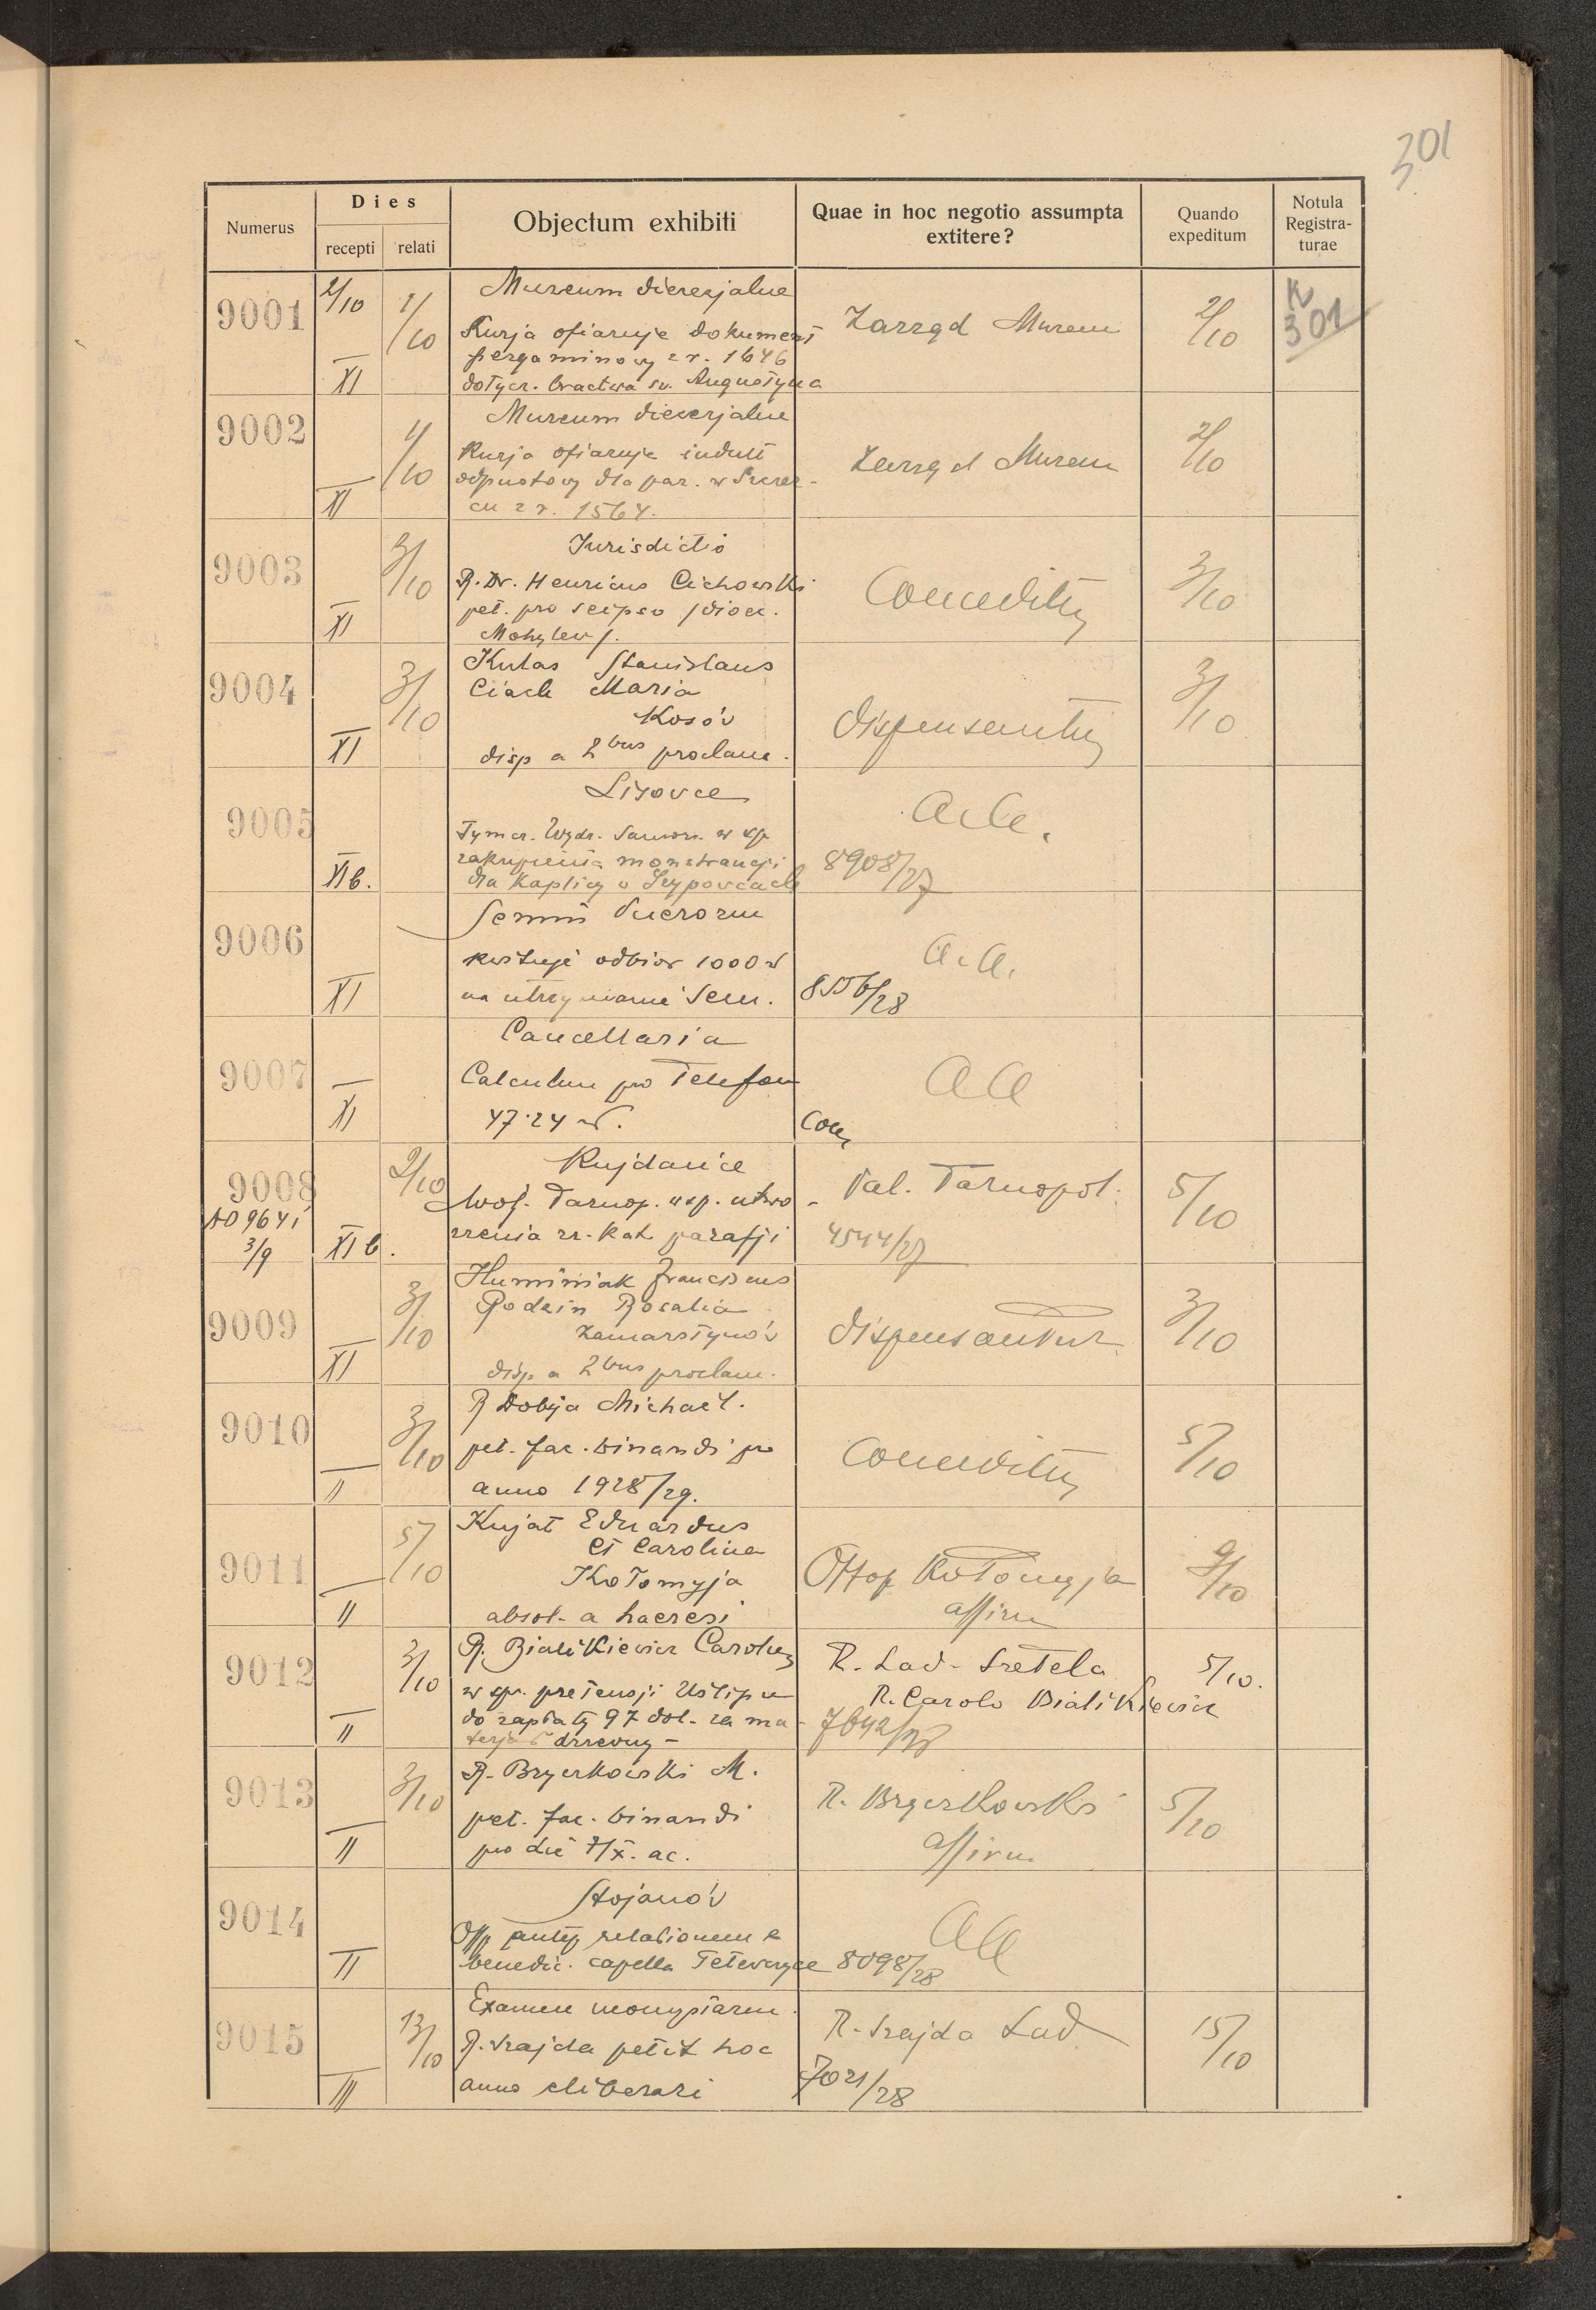 301
Numerus
Dies
recepti relati
Objectum exhibiti
Quae in hoc negotio assumpta
extitere?
Quando
expeditum
Notula
Registra-
turae
9001
2/10
1/10
XI
Museum diecezjalne
Kurja ofiaruje dokument
pergaminowy z r. 1646
dotycz. bractwa św. Augustyna
Zarząd Muzeum
2/10
K
301
9002
1/10
XI
Museum diecezjalne
Kurja ofiaruje indult
odpustowy dla par. w Szczer-
cu z r. 1564.
Zarząd Muzeum
2/10
9003
3/10
XI
Jurisdictio
R. Dr. Henricus Cichowski
pet. pro seipso /dioec.
Mohylew/.
Conceditur
3/10
9004
3/10
XI
Kulas Stanislaus
Ciach Maria
Kosów
disp a 2bus proclam.
Dispensantur
3/10
9005
XIb.
Lisowce
Tymcz. Wydz. Samorz. w sp.
zakupienia monstrancji
dla kaplicy w Szypowcach
a.a.
8908/27
9006
XI
Semin Puerorum
kwituje odbiór 1000 zł
na utrzymanie Sem.
a.a.
8556/28
9007
XI
Cancellaria
Calculum pro Telefon
47·24 zł.
aa
9008
AD 9641
3/9
XI b.
2/10
Kujdańce
Woj. Tarnop. w sp. utwo-
rzenia rz.-kat. parafji
Pal. Tarnopol.
4544/27
5/10
9009
3/10
XI
Huminiak Franciscus
Godzin Rosalia
Zamarstynów
disp a 2bus proclam.
Dispensantur
3/10
9010
3/10
II
R Dobija Michaël.
pet. fac. binandi pro
anno 1928/29.
Conceditur
5/10
9011
5/10
II
Kujat Eduardus
et Carolina
Kołomyja
absol. a haeresi
Offop Kołomyja
affirm
9/10
9012
3/10
II
R. Bialikiewicz Carolus
w sp. pretensji Ustipu
do zapłaty 97 dol. za ma-
terjał drzewny –
R. Lad. Szetela
R. Carolo Bialikiewicz
7642/28
5/10.
9013
3/10
II
R. Bryczkowski M.
pet. fac. binandi
pro die 7/X. ac.
R. Bryczkowski
affirm.
5/10
9014
II
Stojanów
relationem e
benedic. capella Tetewczyce
8098/28
aa
9015
13/10
III
Examen
R. Szajda petit hoc
anno eliberari
R. Szajda Lad
7021/28
15/10